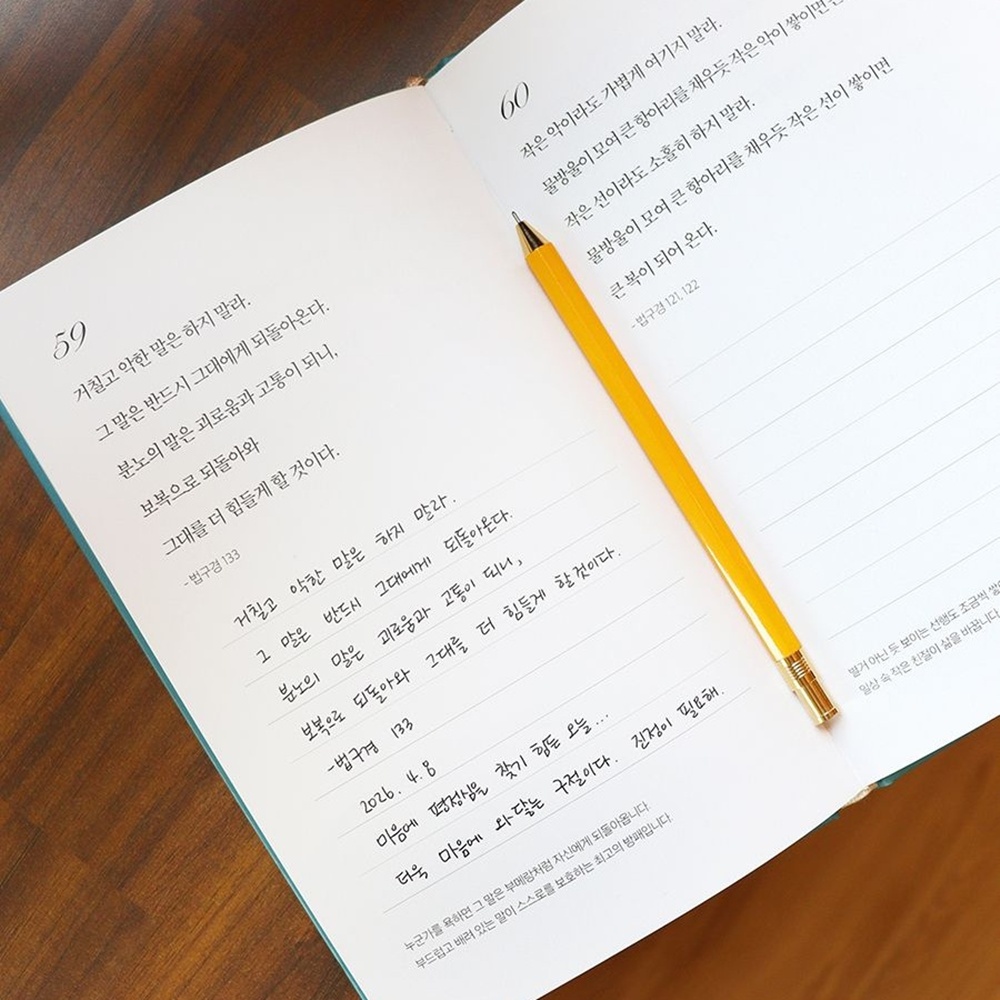 59
거칠고 악한 말은 하지 말라.
그 말은 반드시 그대에게 되돌아온다.
분노의 말은 괴로움과 고통이 되니,
보복으로 되돌아와
그대를 더 힘들게 할 것이다.
- 법구경 133
거칠고 악한 말은 하지 말라.
그 말은 반드시 그대에게 되돌아온다.
분노의 말은 괴로움과 고통이 되니,
보복으로 되돌아와 그대를 더 힘들게 할 것이다.
-법구경 133
2026. 4. 8
마음에 평정심을 찾기 힘든 오늘...
더욱 마음에 와닿는 구절이다. 진정이 필요해.
누군가를 욕하면 그 말은 부메랑처럼 자신에게 되돌아옵니다.
부드럽고 배려 있는 말이 스스로를 보호하는 최고의 방패입니다.
60
작은 악이라도 가볍게 여기지 말라.
물방울이 모여 큰 항아리를 채우듯 작은 악이 쌓이면
작은 선이라도 소홀히 하지 말라.
물방울이 모여 큰 항아리를 채우듯 작은 선이 쌓이면
큰 복이 되어 온다.
- 법구경 121, 122
별거 아닌 듯 보이는 선행도 조금씩
일상 속 작은 친절이 삶을 바꿉니다.